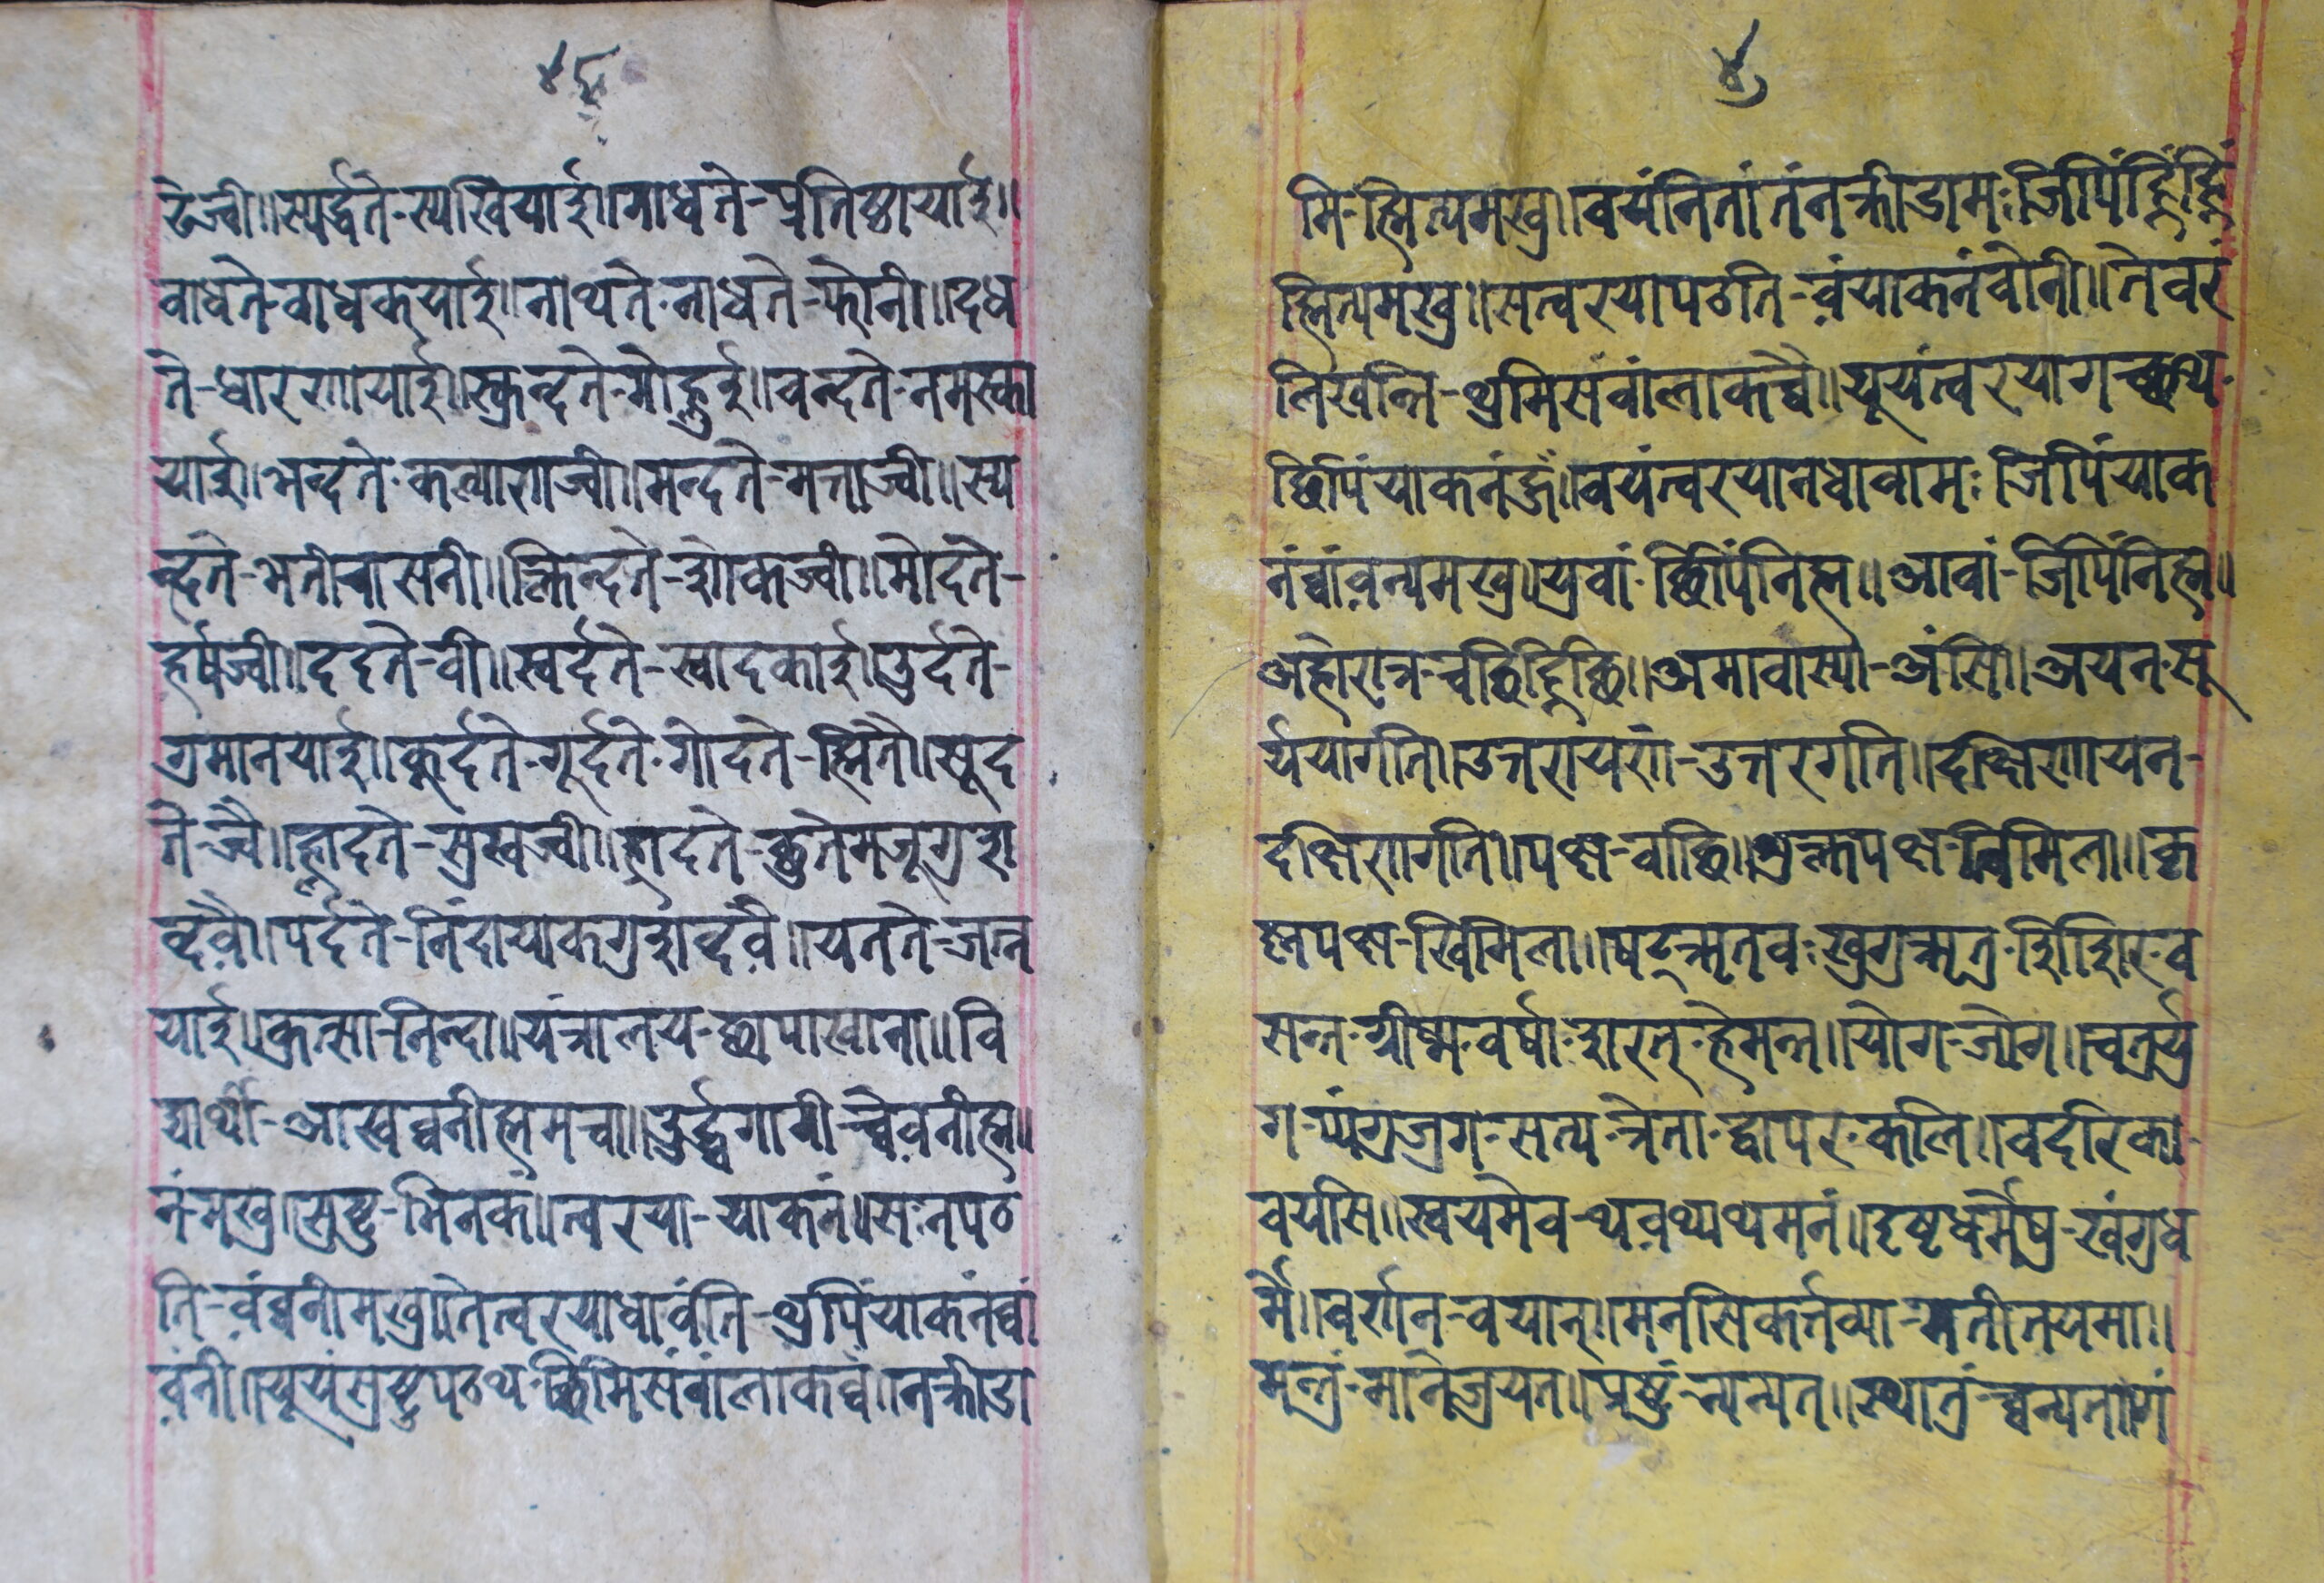 ४६
ढेज्वी॥स्पर्द्धते-स्पखियार्इ॥गाधते-प्रतिष्ठायार्इ॥
वाधते-वाधकयार्इ॥नाथते-नाधते-फोनी॥दध
ते-धारणायार्इ॥स्क्रन्दते-मोह्नुर्इ॥वन्दते-नमस्का
यार्इ॥भन्दते-कल्याणज्वी॥मन्दते-मत्ताज्वी॥स्प
न्दते-भतीचासनी॥क्लिन्दते-शोकज्वी॥मोदते-
हर्षज्वी॥ददते-वी॥स्वर्दते-स्वादकार्इ॥उर्दते-
ग्रमानयार्इ॥कुर्दते-गूर्दते-गोदते-ह्मितै॥सूद
ते-ज्वै॥ह्लादते-सुखज्वी॥ह्रादते-छुतेमजूगुश
व्दवै॥पर्दते-निंदायाकगुशव्दवै॥यतते-जत्न
यार्इ॥कुत्सा-निन्दा॥यंत्रालय-छापाखाना॥वि
द्यार्थी-आखव्वनीह्ममचा॥उर्द्ध्वगामी-च्वेवनीह्म॥
नं-मखु॥सुष्टु-भिनकं॥त्वरया-याकनं॥सःनपठ
ति-वंव्वनीमखु॥तेत्वरयाधावंति-थुपिंयाकनंव्वां
वंनी॥यूयंसुष्टुपठथ-छिमिसंबांलाकव्वं॥नक्रीडा
४७
मि-ह्मित्यमखु॥वयंनितांतंनक्रीडामः-जिपिंह्निंह्निं
ह्मित्यमखु॥सत्वरयापठति-वंयाकनंवोनी॥तेवरं
लिखन्ति-थुमिसंवांलाकच्वै॥यूयंत्वरयागच्छथ-
छिपिंयाकनंहुं॥वयंत्वरयानधावामः-जिपिंयाक
नंव्वांवन्यमखु॥युवां-छिपिंनिह्म॥आवां-जिपिंनिह्म॥
अहोरात्र-चछिह्निछि॥अमावास्या-अंसि॥अयन-सू
र्य्ययागति॥उत्तरायरां-उत्तरगति॥दक्षिणायन-
दक्षिणगति॥पक्ष-वाछि॥शुक्लपक्ष-त्विमिला॥कृ
ष्णपक्ष-खिमिला॥षट्ऋतवः-खुगुऋतु-शिशिर-व
सन्त-ग्रीष्म-वर्षा-शरत्-हेमन्त॥योग-जोग॥चतुर्यु
ग-प्यंगुजुग-सत्य-त्रेता-द्वापर-कलि॥वदरिका-
वयसि॥स्वयमेव-थवथ्यथमनं॥दृष्टधर्मेषु-खंगुध
र्मे॥वर्णान्-वयान्॥मनसिकर्त्तव्या-मतीतयमा॥
मन्त्रं-मनिजुयत॥प्रष्टुं-न्यन्यत॥स्थातुं-च्वन्यतोगं